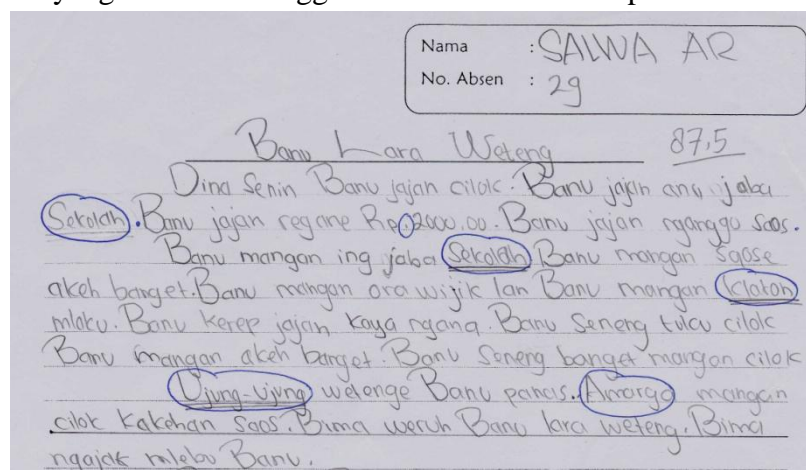 Nama : SALWA AR
No. Absen : 29
Banu Lara Weteng 87,5
Dina Senin Banu jajan cilok. Banu jajan ana jaba
Sekolah. Banu jajan regane Rp.2000.00. Banu jajan nganggo saos.
Banu mangan ing jaba Sekolah Banu mangan saose
akeh banget. Banu mangan ora wijik lan Banu mangan
mlaku. Banu kerep jajan kaya ngana. Banu Seneng tuku cilok
Banu mangan akeh banget. Banu Seneng banget mangan cilok
Ujung-Ujung wetenge Banu panas. Amarga mangan
cilok kakehan saos. Bima weruh Banu lara weteng. Bima
ngajak mlebu Banu.